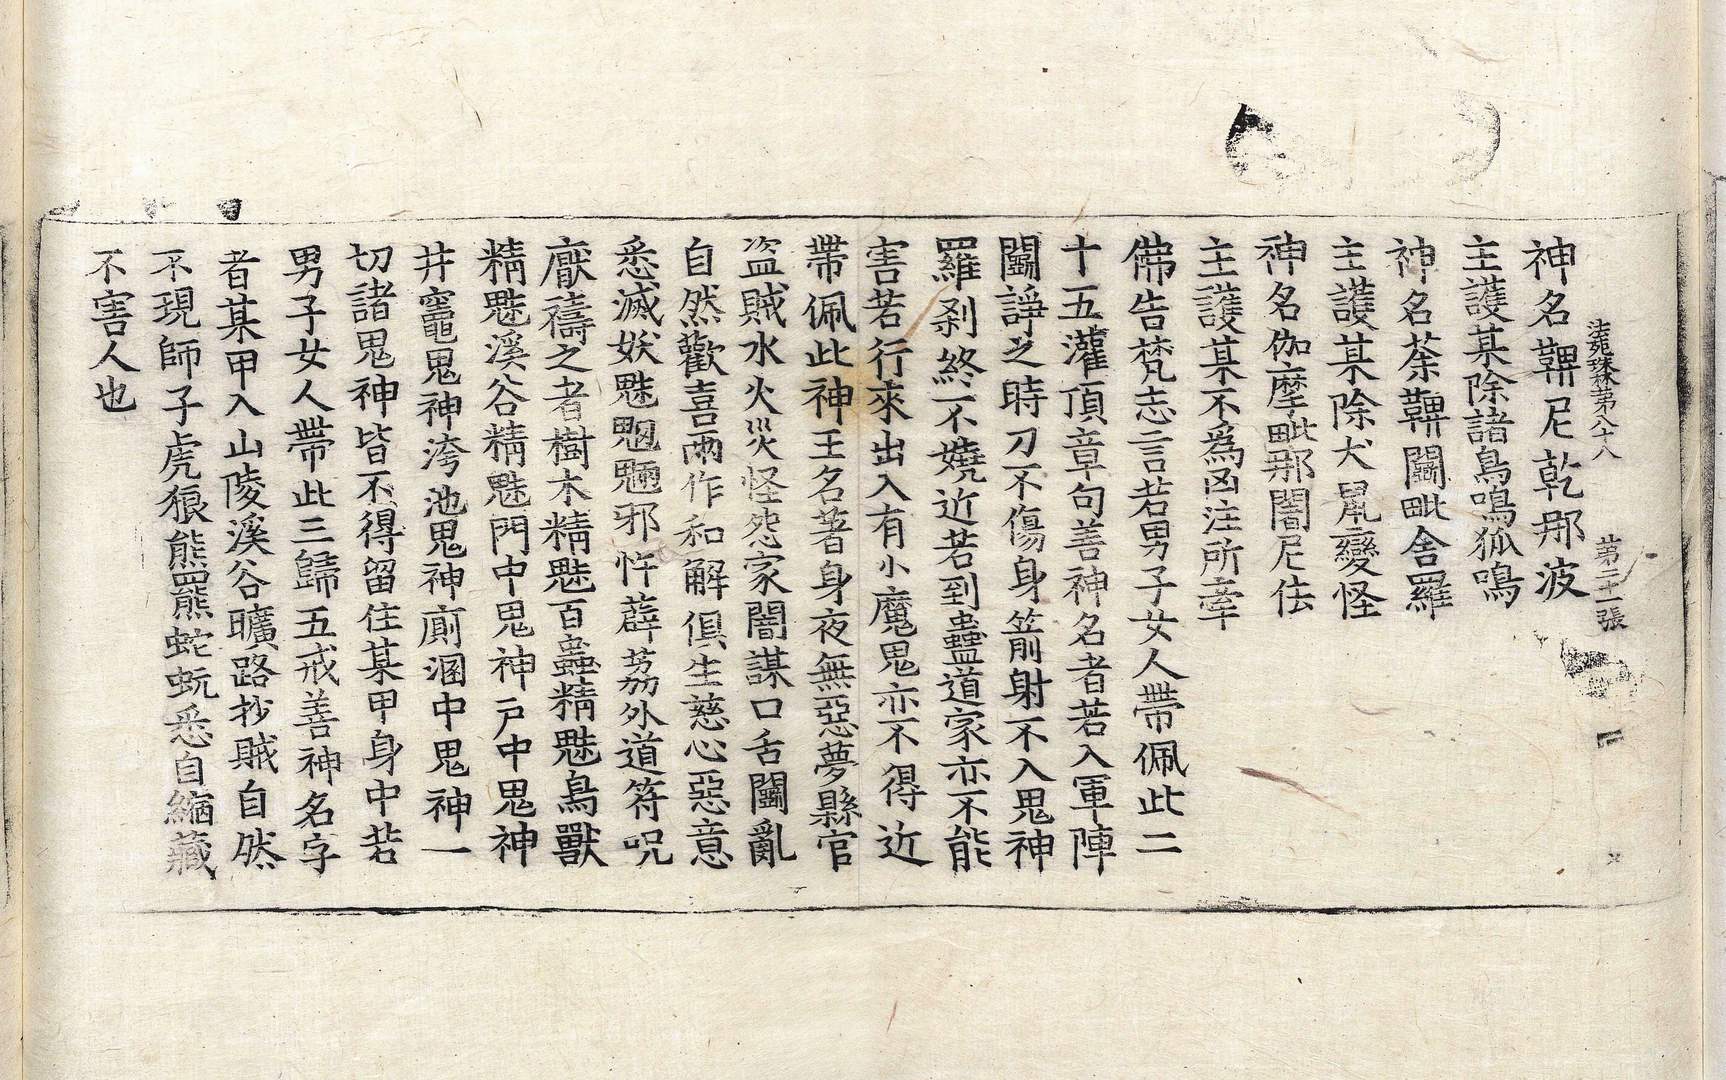 法苑珠林第八十八　第二十一張
神名鞞尼乾那波
主護某除諸鳥鳴狐鳴
神名荼鞞闍毗舍羅
主護某除犬鼠變怪
神名伽摩毗那闍尼佉
主護某不爲凶注所牽
佛告梵志言若男子女人帶佩此二
十五灌頂章句善神名者若入軍陣
鬪諍之時刀不傷身箭射不入鬼神
羅刹終不嬈近若到蠱道家亦不能
害若行來出入有小魔鬼亦不得近
帶佩此神王名者身夜無惡夢縣官
盜賊水火災怪怨家闇謀口舌鬪亂
自然歡喜兩作和解俱生慈心惡意
悉滅妖魅魍魎邪忤薜荔外道符呪
厭禱之者樹木精魅百蟲精魅鳥獸
精魅溪谷精魅門中鬼神戶中鬼神
井竈鬼神洿池鬼神廁溷中鬼神一
切諸鬼神皆不得留住某甲身中若
男子女人帶此三歸五戒善神名字
者某甲入山陵溪谷曠路抄賊自然
不現師子虎狼熊羆蛇蚖悉自縮藏
不害人也